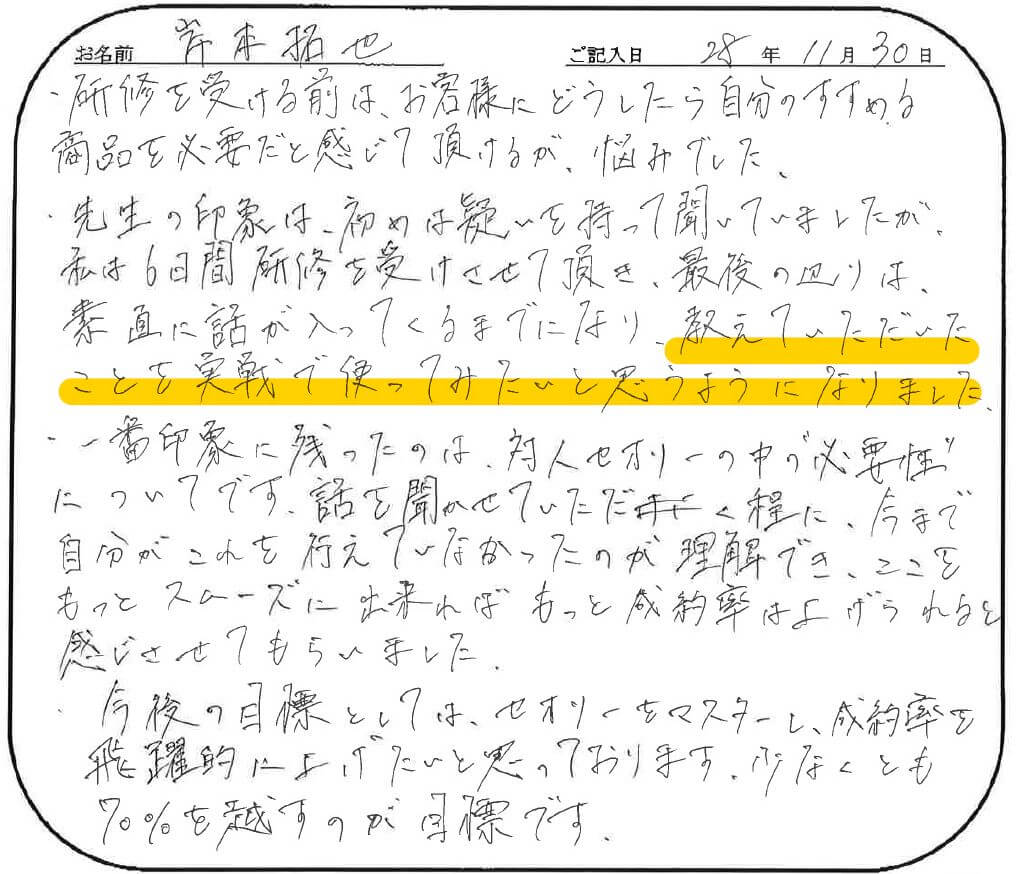 お名前 岸本拓也 ご記入日 28年11月30日
・研修を受ける前は、お客様にどうしたら自分のすすめる
商品を必要だと感じて頂けるが、悩みでした、
・先生の印象は、初めは疑いを持って聞いていましたが、
私は6日間研修を受けさせて頂き、最後の辺りは、
素直に話が入ってくるまでになり、教えていただいた
ことを実戦で使ってみたいと思うようになりました、
・一番印象に残ったのは、対人セオリーの中の"必要性"
についてです、話を聞かせていただく程に、今まで
自分がこれを行えていなかったのが理解でき、ここを
もっとスムーズに出来ればもっと成約率は上げられると
感じさせてもらいました、
・今後の目標としては、セオリーをマスターし、成約率を
飛躍的に上げたいと思っております、少なくとも
70%を越すのが目標です、